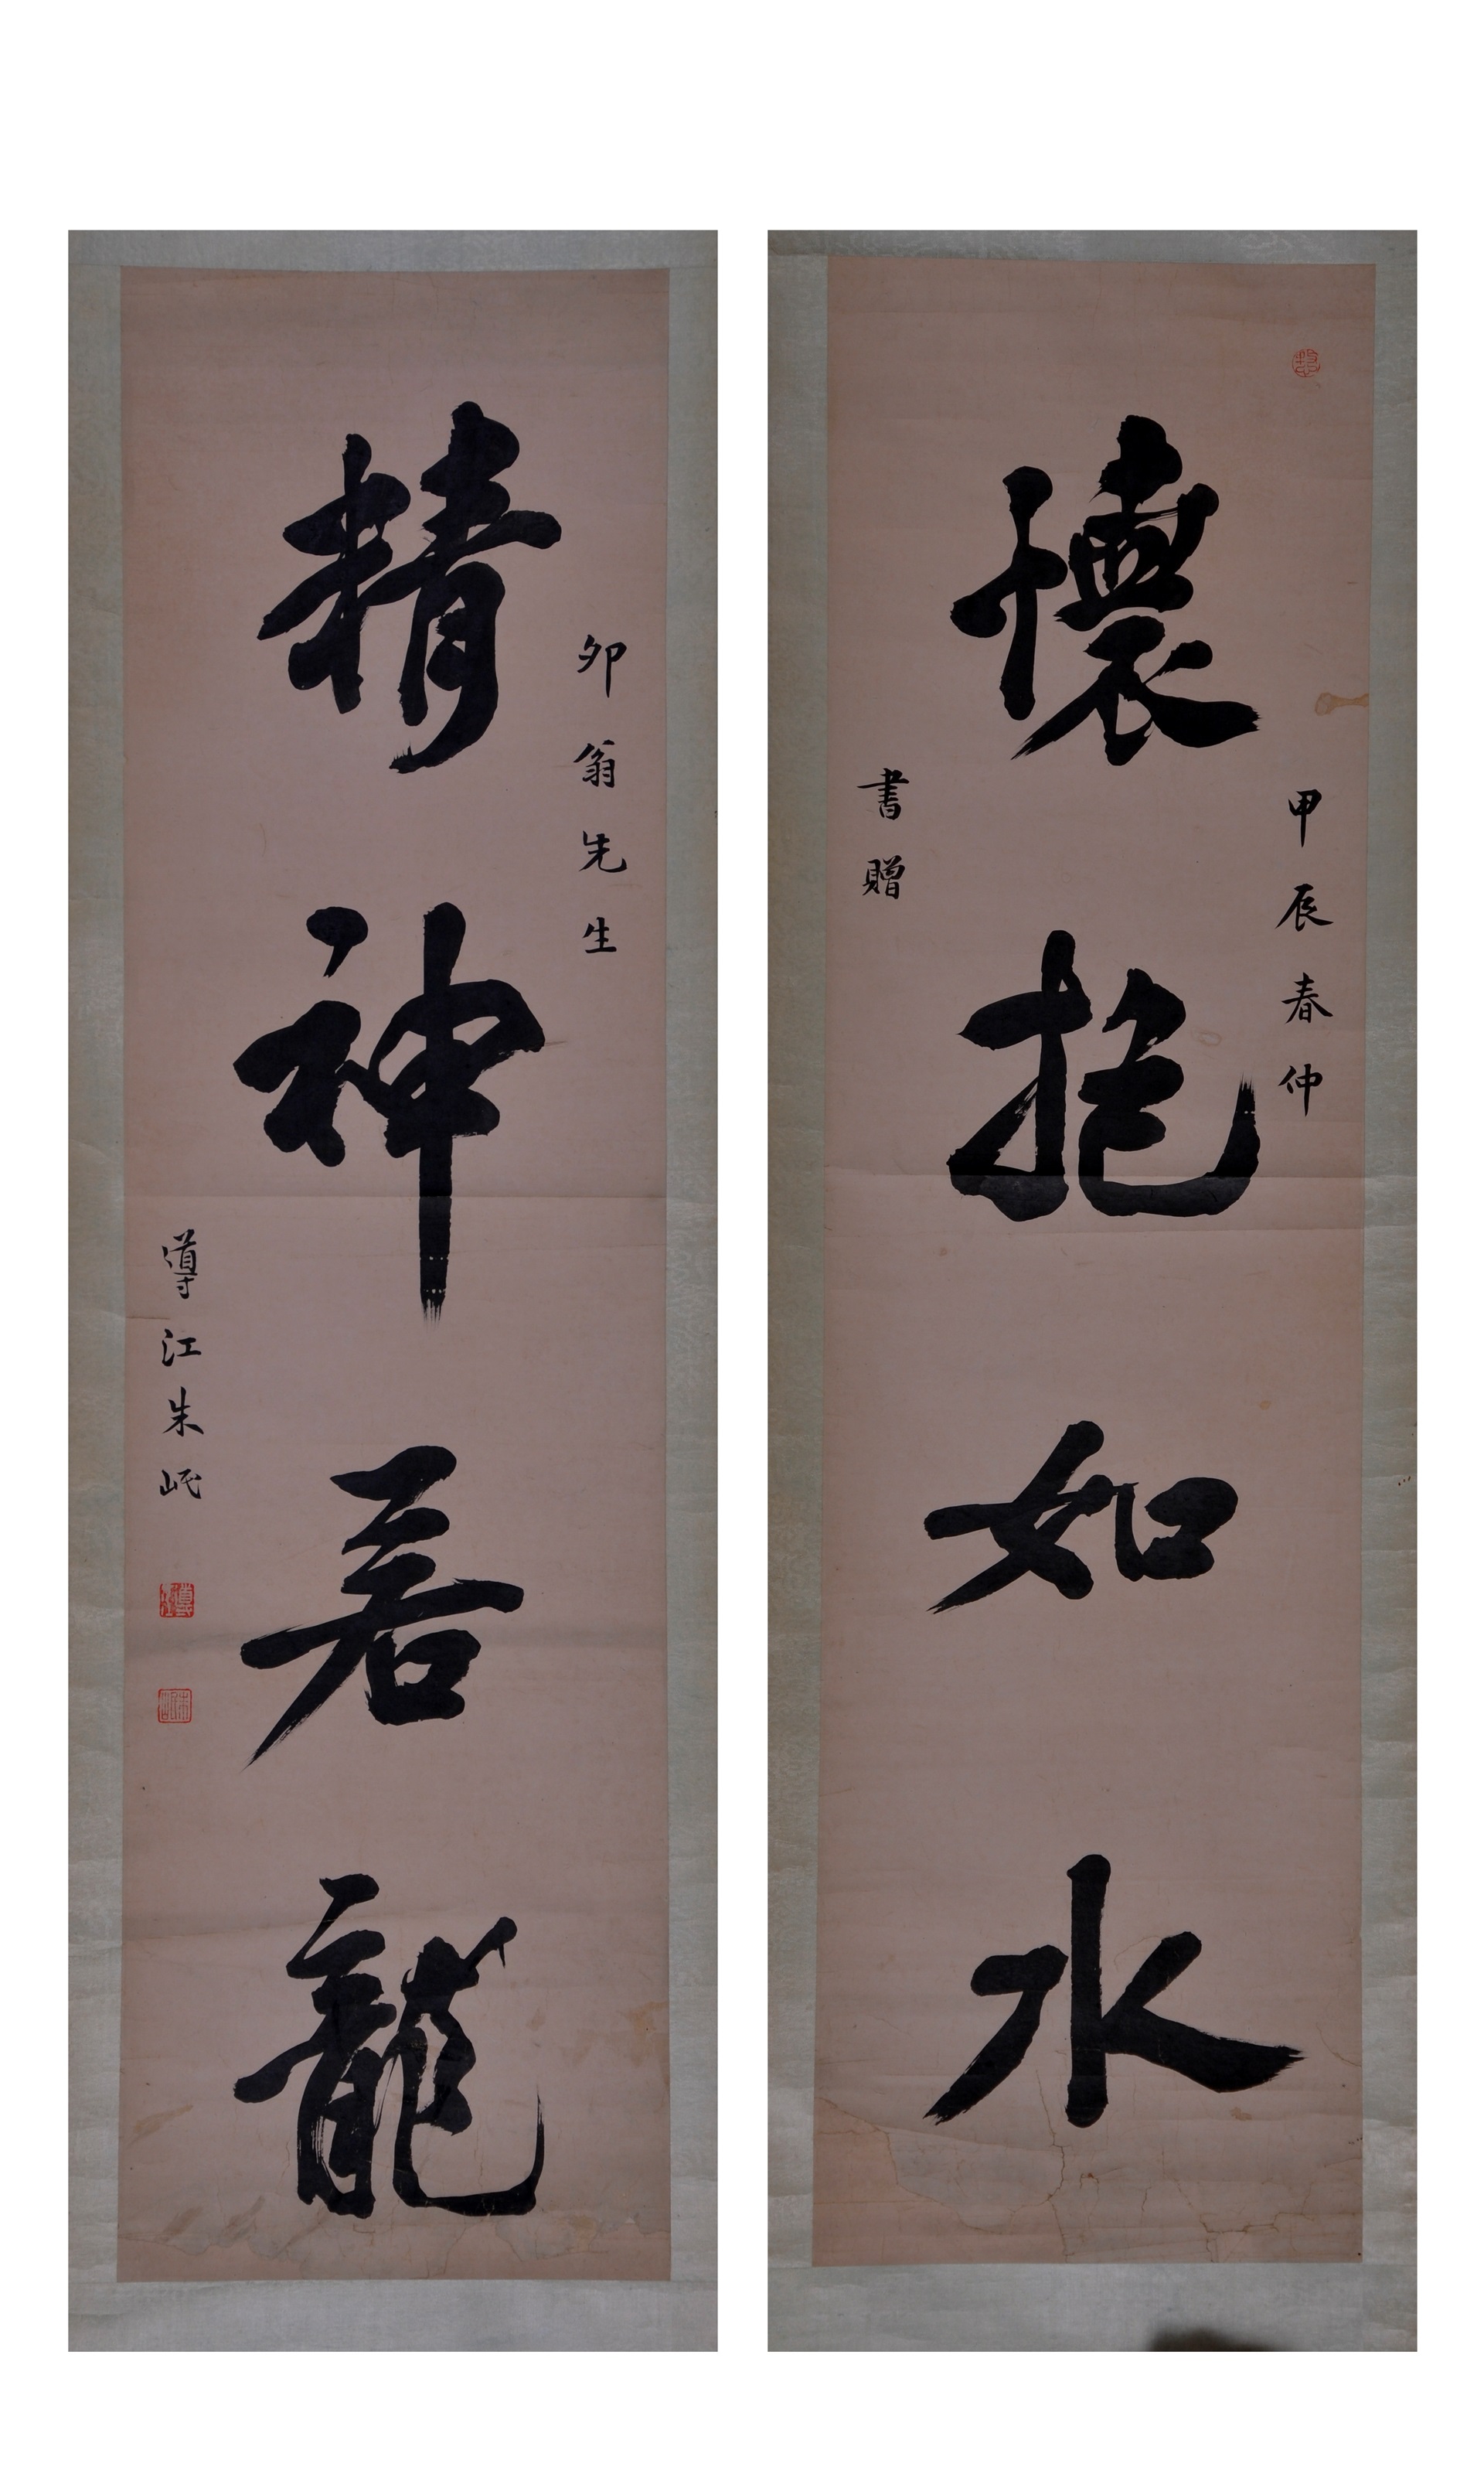 甲辰春仲
懷抱如水
書贈
卯翁先生
精神若龍
導江朱岷